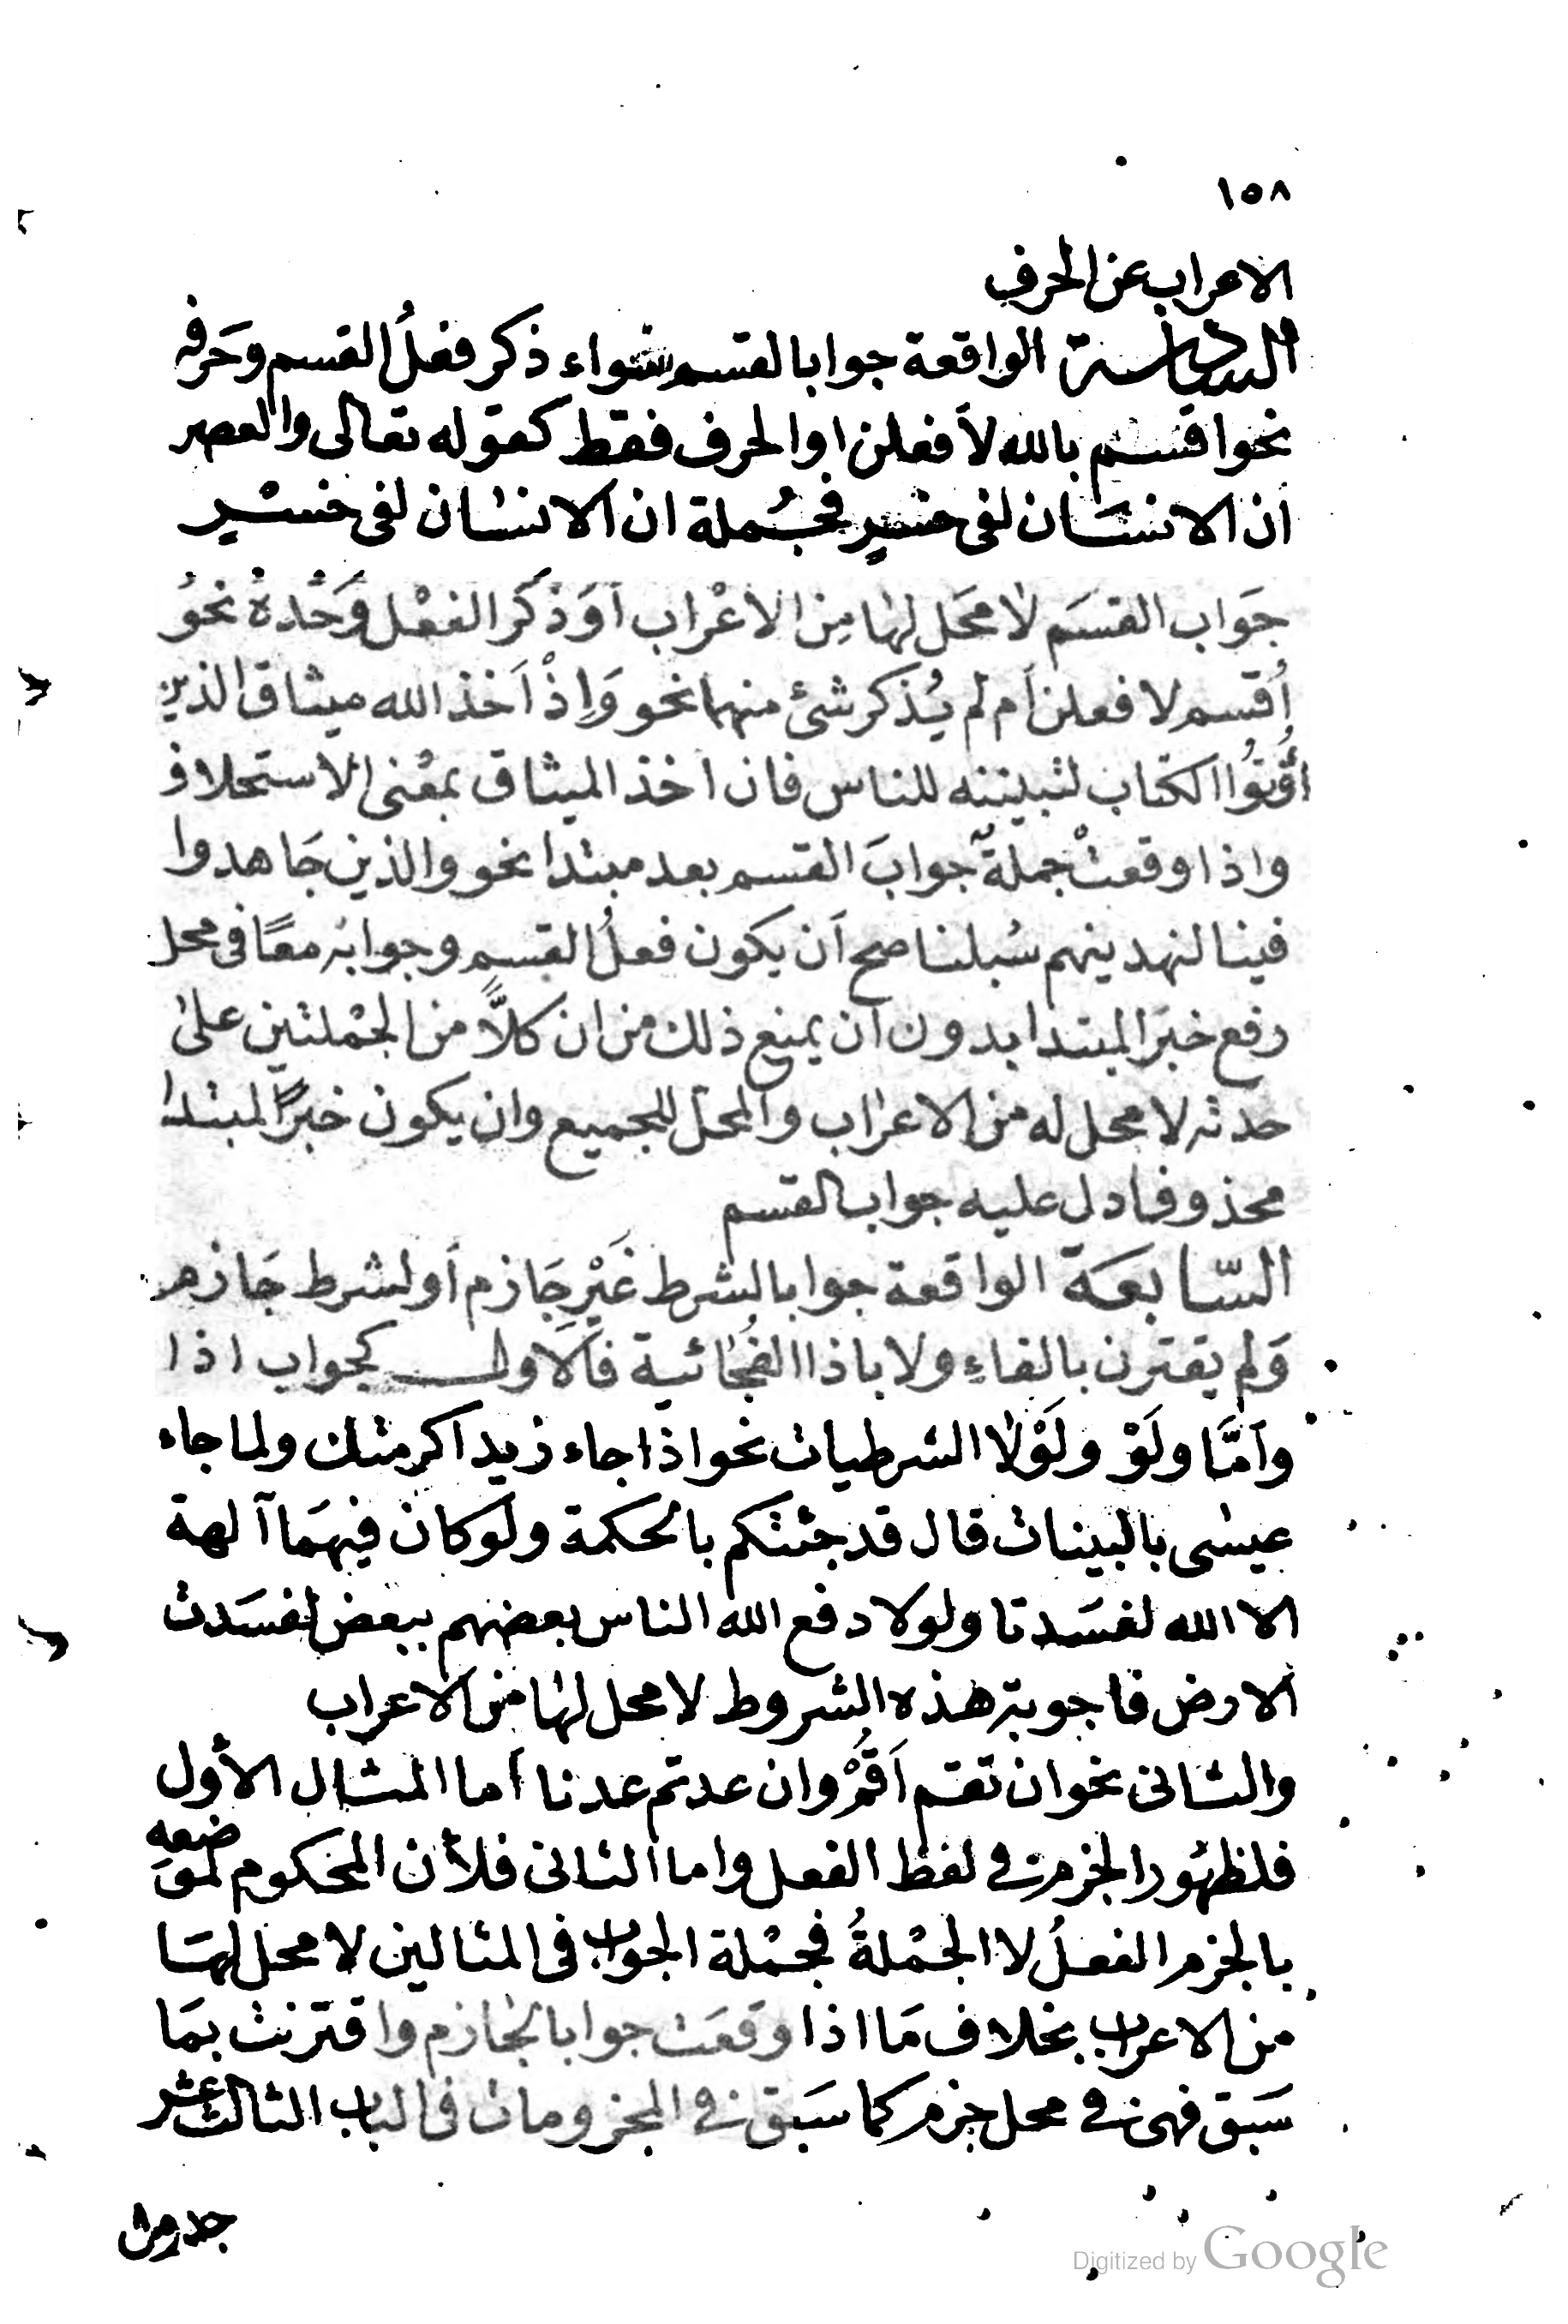 ١٥٨
الاعراب عن الحرف
السادسة الواقعة جوابا لقسم سواء ذكر فعلُ القسم وحَرفه
نحوا قسم بالله لأفعلن او الحرف فقط كقوله تعالى والعصر
ان الانسَان لفى خسرٍ فجُملة ان الانسَان لفى خسْرٍ
جَواب القسَم لا محَل لهَا مِن الاعْراب أوَ ذُكرَ الفعْل وَحْدهُ نحوُ
أُقسم لا فعلن أم لم يُذكر شئ منهما نحو وَاِذْ أَخذ الله ميثاق الذين
أُوتوُا الكتاب لتبيننه للناس فان اخذ الميثاق بمعْنى الاستحلاف
واذا وقعتْ جملةٌ جوابَ القسم بعد مبتدا نحو والذين جَاهدوا
فينا لنهدينهم سُبلنا صح أن يكون فعلُ القسمِ وجوابُه معًا فى محل
رفع خبَر المبتدا بدون أن يمنع ذلك من ان كلاًّ من الجمْلتين علىٰ
حدته لا محل له من الاعرَاب والمحَل للجميع وان يكون خبرُ المبتدا
محذوفا دل عليه جواب القسم
السّابعَة الواقعة جوابا لشرط غَيْرِ جَازم أو لشرط جَازم
وَلم يقترن بالفاءِ ولا باذا الفُجَائية فالأول كجواب اذا
وأمَّا ولَوْ ولَوْلا الشرطيات نحو اذا جاء زيد اكرمتك ولما جاء
عيسٰى بالبينات قال قد جئتكم بالحكمة ولَو كان فيهمَا آلهة
الا الله لفسَدتا ولولا دفع الله الناس بعضهم ببعض لفسَدت
الارض فاجوبة هذه الشروط لا محل لهَا من الاعراب
والثانى نحوان تقم أَقُمْ وان عدتم عدنا أما المثال الأول
فلظهُور الجزم فى لفظ الفعل واما الثانى فلأن المحكوم لموَضعه
بالجزم الفعلُ لا الجمْلةُ فجمْلة الجواب فى المثالين لا محل لهَا
من الاعراب بخلاف مَا اذا وقعَت جوابا لجَازم واقترنت بمَا
سَبق فهى فى محل جزم كما سَبق فى المجزومات فى الباب الثالث عشر
Digitized by Google